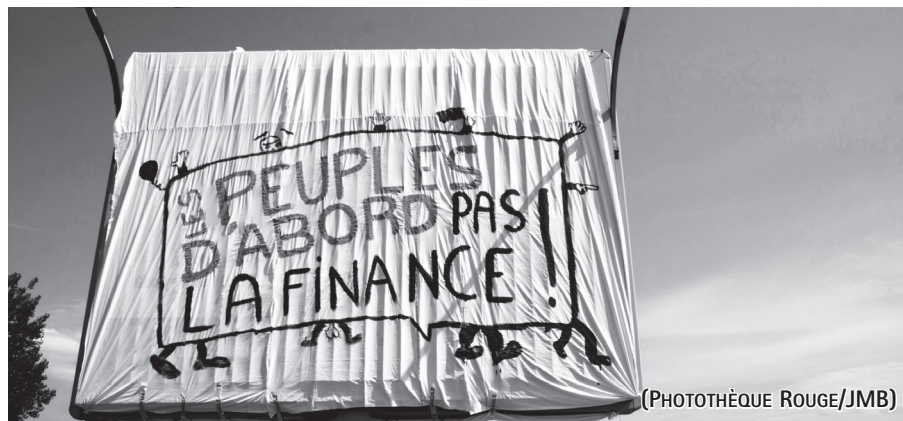 LES PEUPLES
D'ABORD PAS
LA FINANCE !
(PHOTOTHÈQUE ROUGE/JMB)